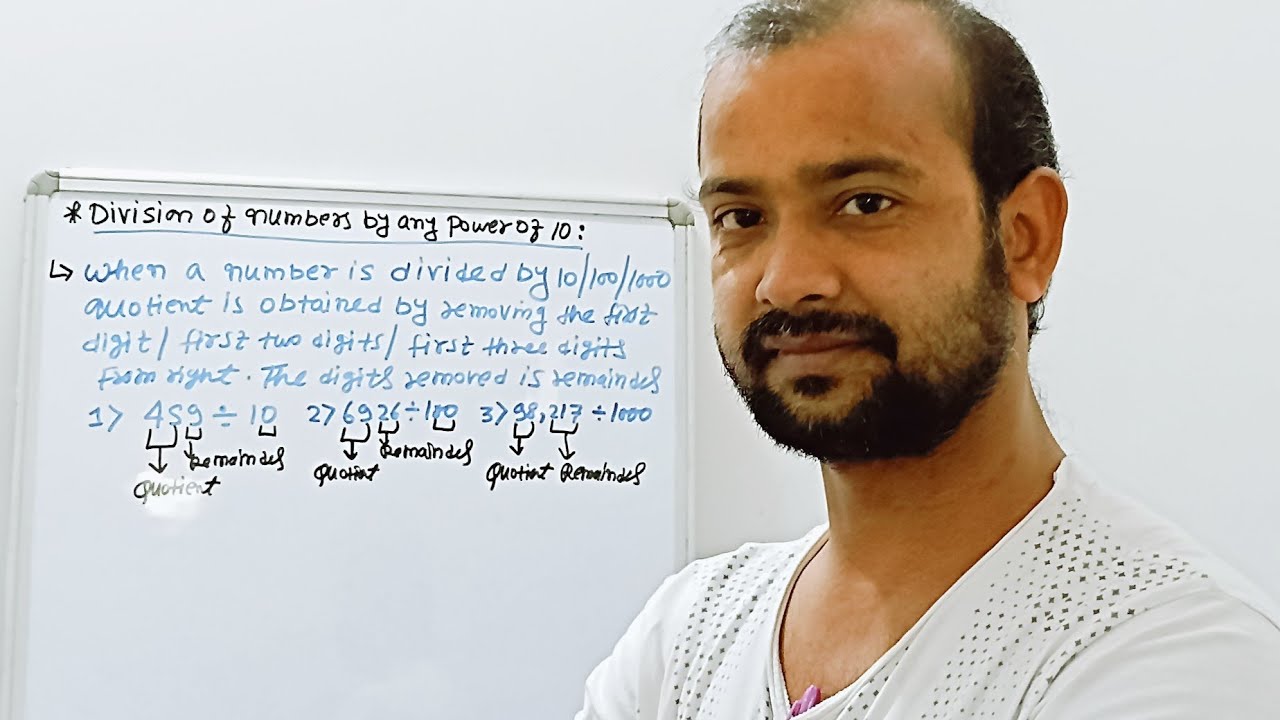 * Division of numbers by any power of 10:
↳ When a number is divided by 10/100/1000
quotient is obtained by removing the first
digit/ first two digits/ first three digits
from right. The digits removed is remainder
1> 459 ÷ 10 2> 6926 ÷ 100 3> 98,217 ÷ 1000
Remainder Remainder Quotient Remainder
Quotient Quotient